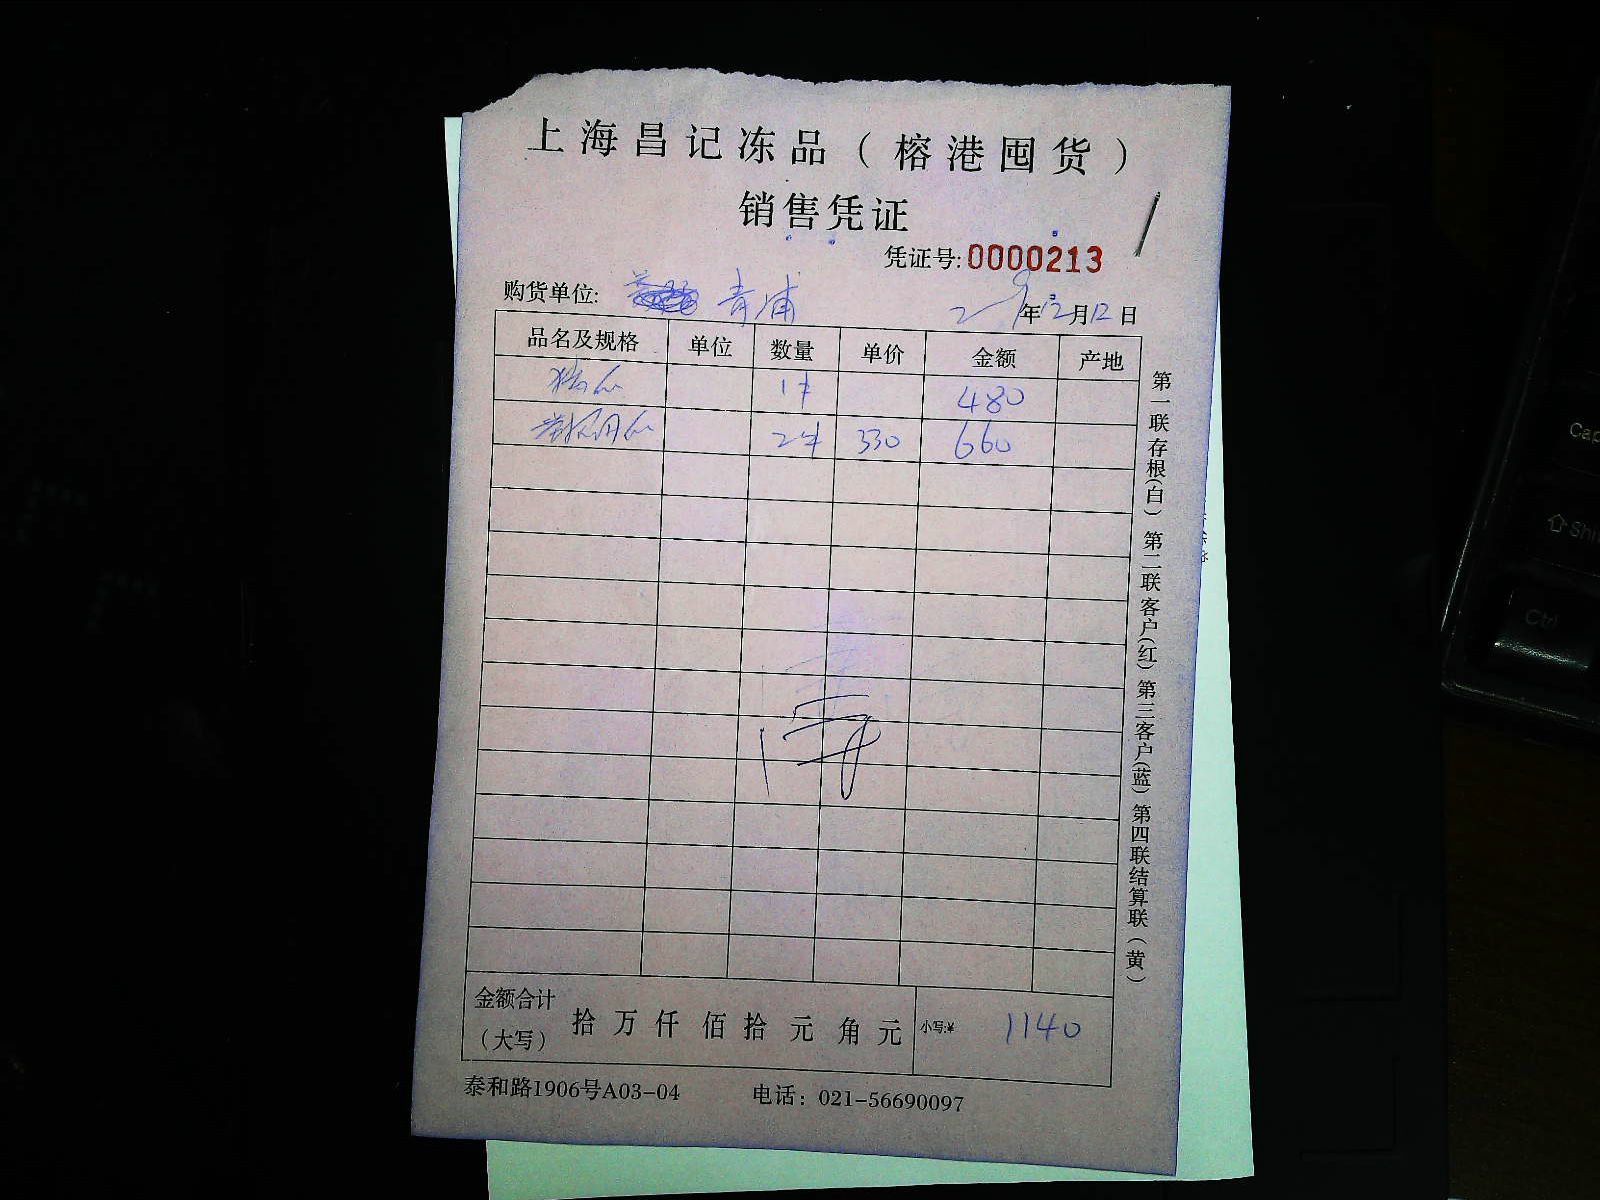 上海昌记冻品（榕港囤货）
销售凭证
凭证号:0000213
购货单位: 青浦 年12月12日
品名及规格 单位 数量 单价 金额 产地
1件 480
2件 330 660
金额合计（大写） 拾 万 仟 佰 拾 元 角 元 小写:¥ 1140
泰和路1906号A03-04 电话：021-56690097
第一联存根(白) 第二联客户(红) 第三客户(蓝) 第四联结算联(黄)
Cap
Shi
Ctrl